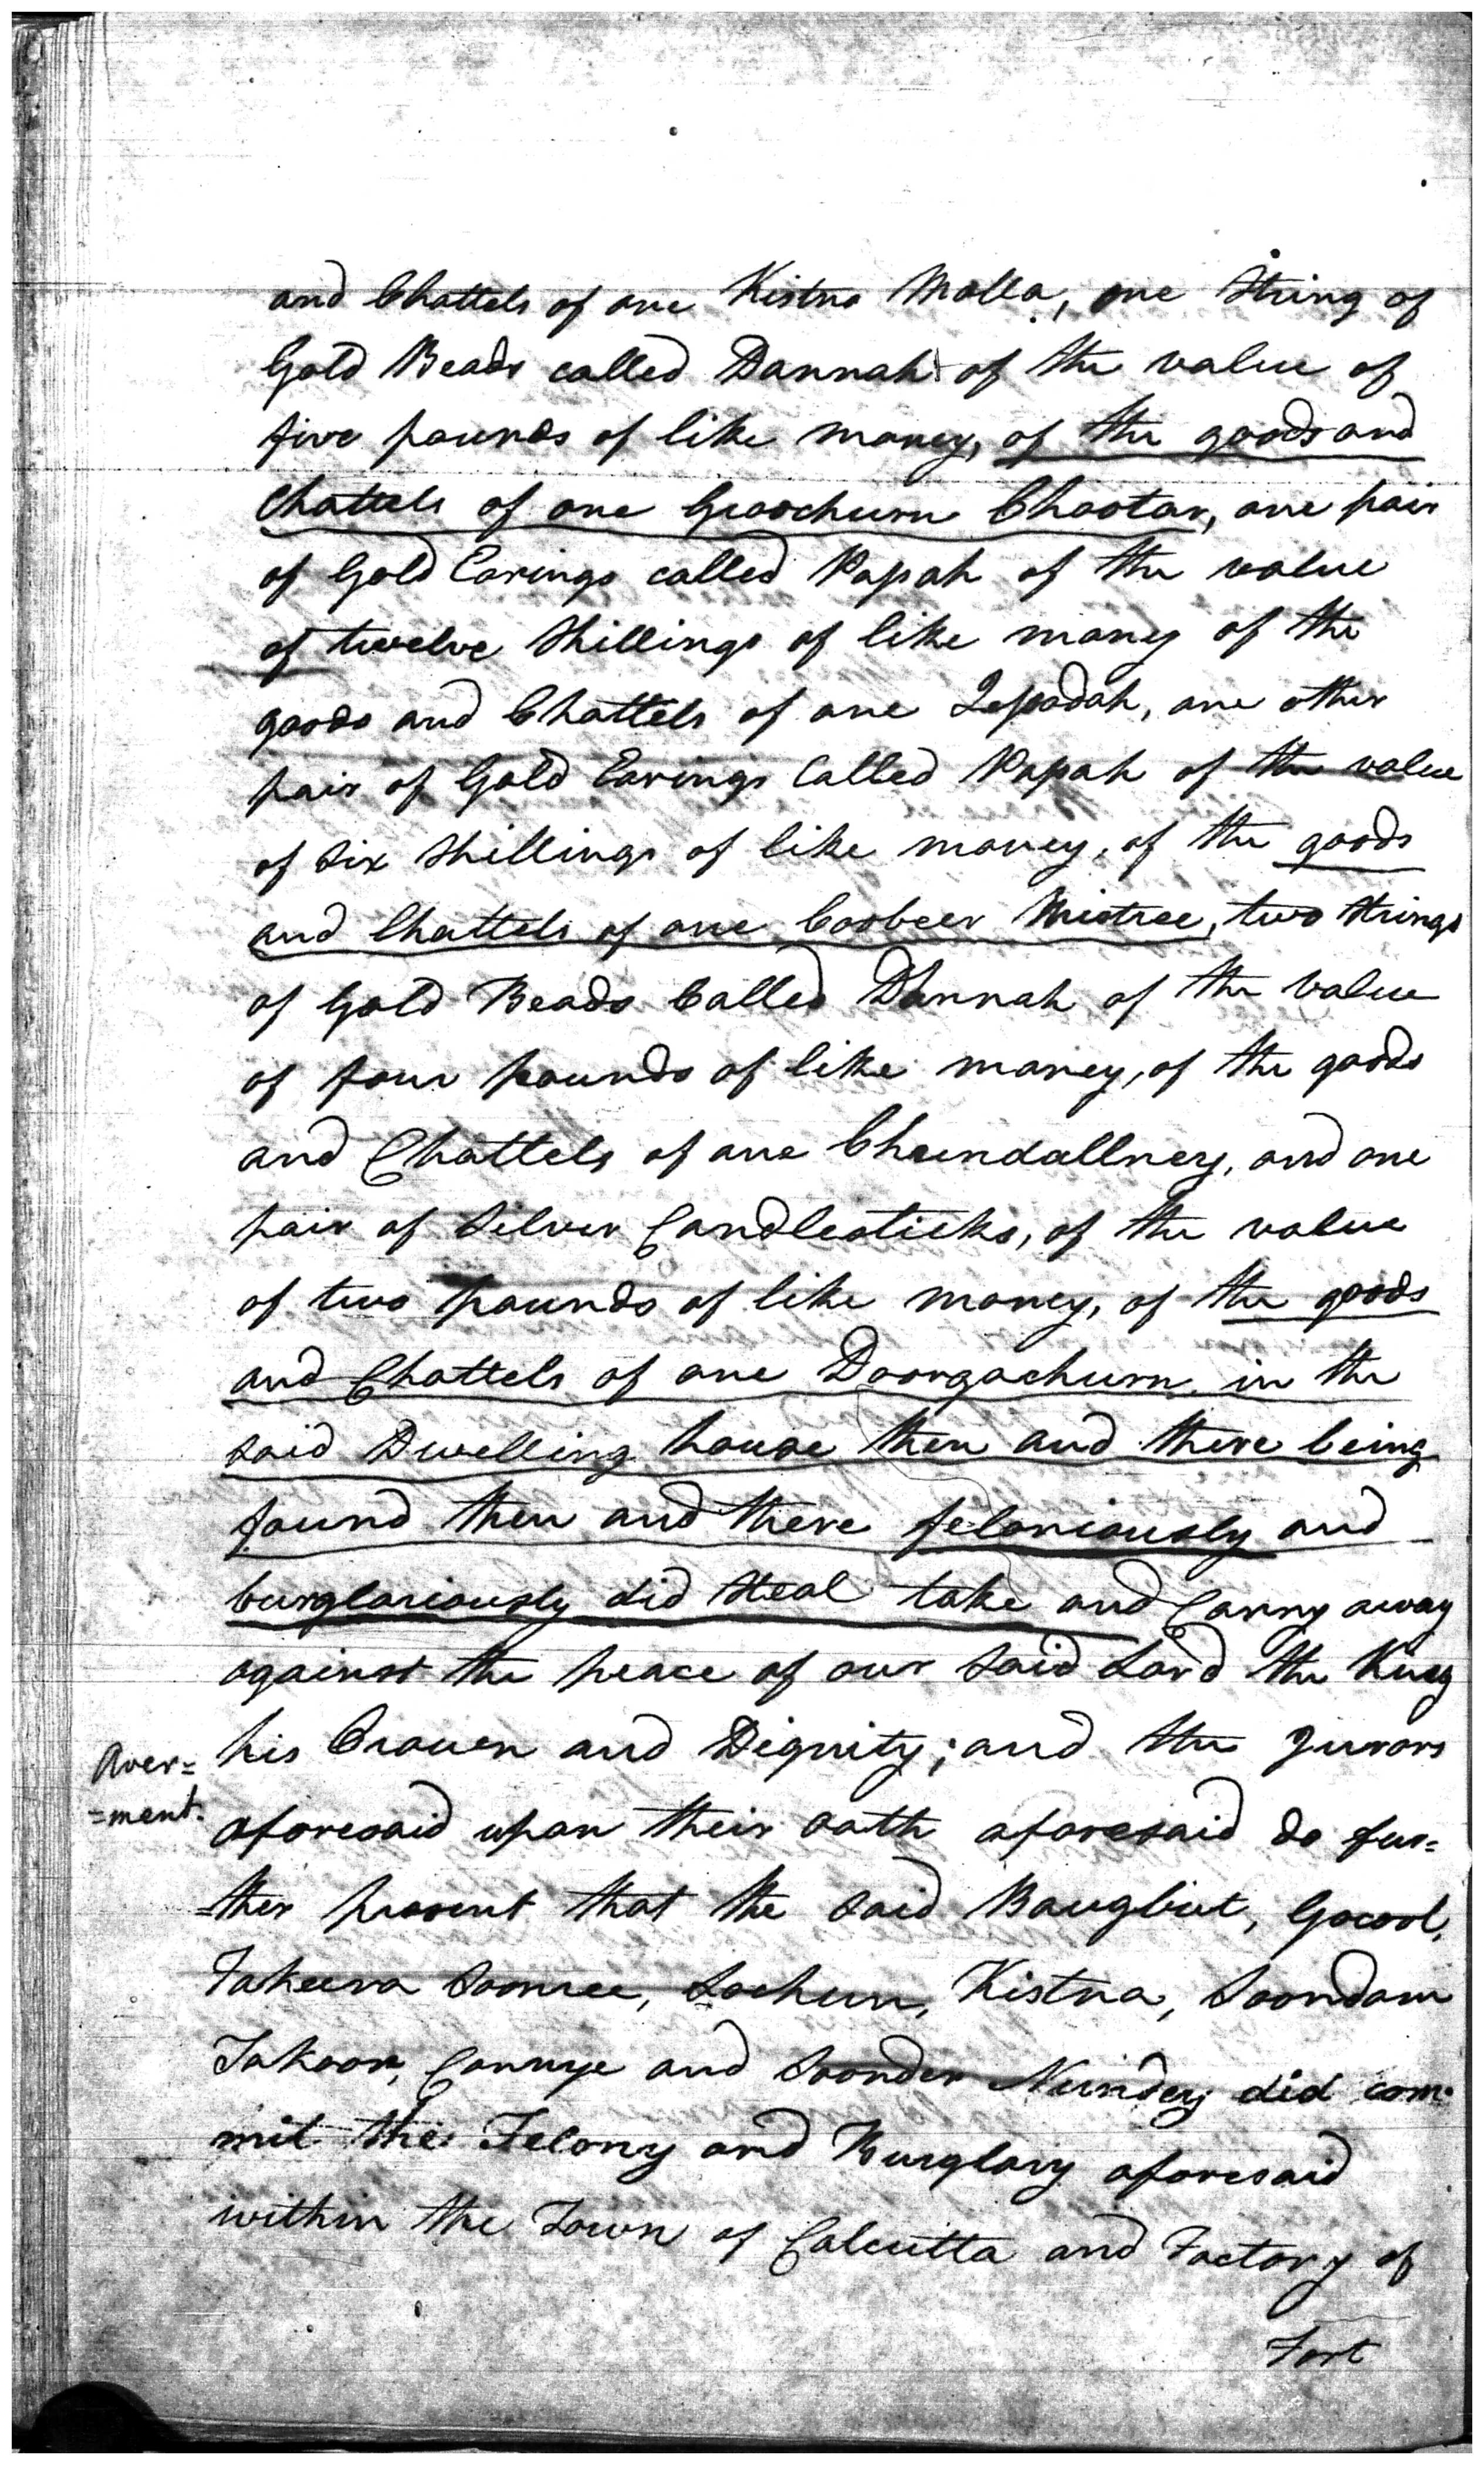 and Chattels of one Kistno Molla, one String of
Gold Beads called Dannah of the value of
five pounds of like money, of the goods and
Chattels of one Groochurn Chootar, one pair
of Gold Earings called Papah of the value
of twelve Shillings of like money of the
goods and Chattels of one Lepodah, one other
pair of Gold Earings Called Papah of the value
of Six Shillings of like money, of the goods
and Chattels of one Coobeer Mistree, two Strings
of Gold Beads Called Dannah of the Value
of four pounds of like money, of the goods
and Chattels of one Cheendallney, and one
pair of Silver Candlesticks, of the value
of two pounds of like money, of the goods
and Chattels of one Doorgachurn in the
said Dwelling house then and there being
found then and there feloniously and
burglariously did Steal take and Carry away
against the peace of our Said Lord the King
his Crown and Dignity; and the Jurors
Aver=
=ment.
aforesaid upon their oath aforesaid do fur=
=ther present that the said Baugbut, Gocool,
Fakeera Soonree, Lochun, Kistna, Soondam
Takoor, Connye and Soonder Nundey did com-
mit the Felony and Burglary aforesaid
within the Town of Calcutta and Factory of
Fort